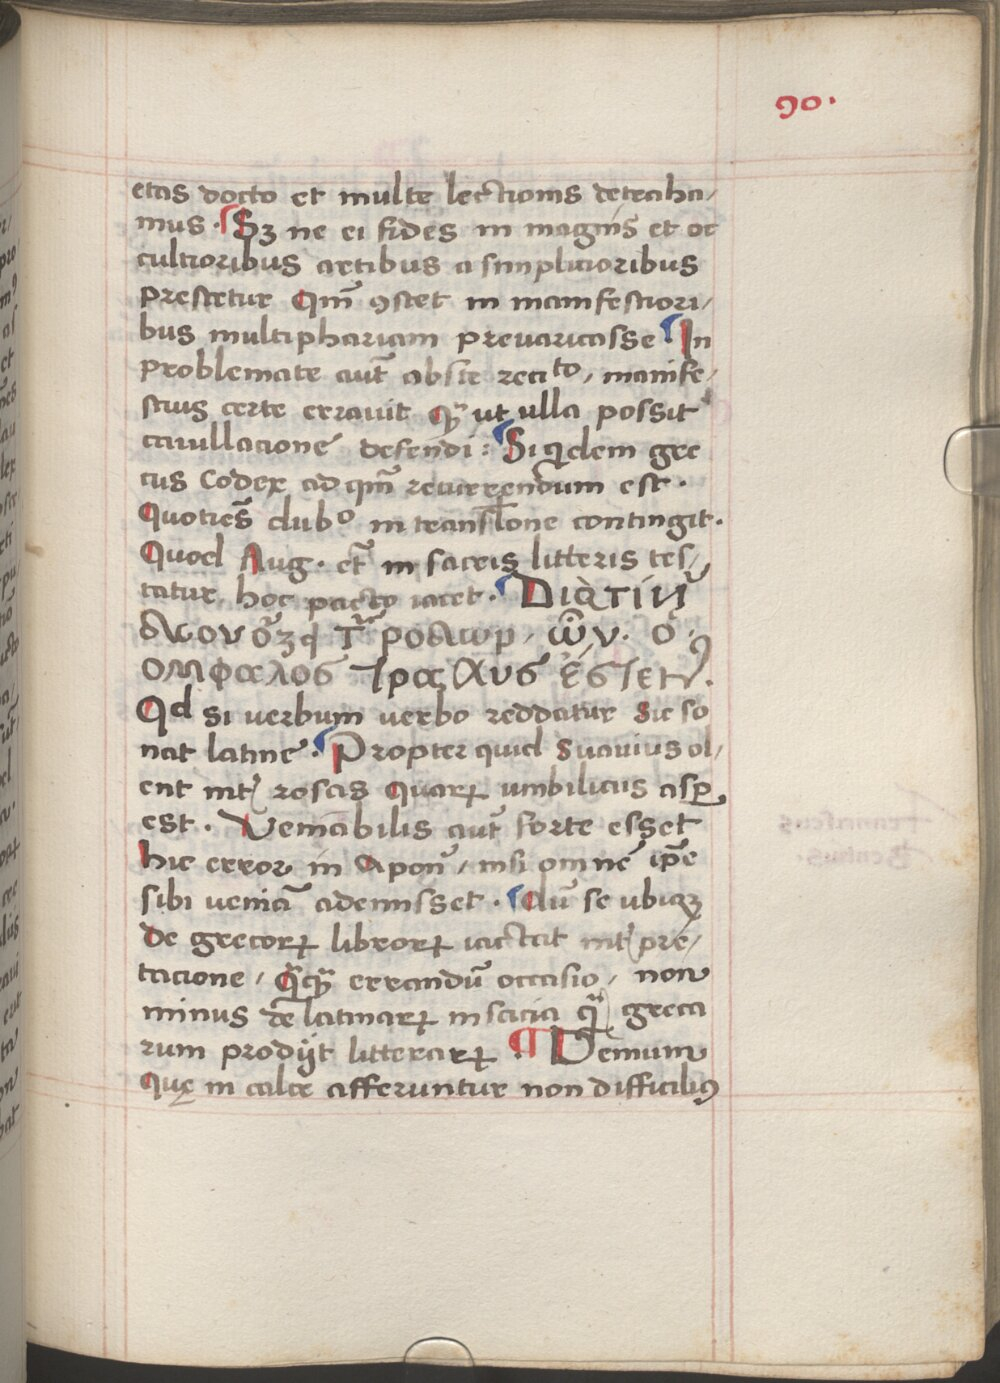 90.
etas docto et multe lectionis detraha/
mus. Sʒ ne ei fides in magnis et oc
cultioribus artibus a simplicioribus
prestetur Qm̄ ꝯstet in manifestiori/
bus multiphariam preuaricasse In
problemate aut̄ abste recito, manife/
stius certe errauit ꝙ̄ ut ulla possit
cauillacione defendi: Siqͥdem gre
cus Codex ad qm̄ recurrendum est.
Quotiēs dubo in transl̄one contingit.
Quod Aug. et̄ in sacris litteris tes/
tatur, hoc pacto iacet. Διατίνι
ομφαλος τραχυς ἐστετι.
Qd si uerbum uerbo reddatur sic so
nat latine. Propter quid suauius ol/
ent int̉ rosas quarꝝ umbilicus asꝑ
est. Veniabilis aut̄ forte esset
hic error in Apon̄, nisi omnē ip̄e
sibi ueniā ademisset. Cū se ubiqꝫ
de grecorꝝ librorꝝ iactat int̉pre/
tacione, qͣꝙͣ errandū occasio, non
minus de latinarꝝ inscicia qͣꝫ greca
rum prodijt litterarꝝ ¶ Demum
Quę in calce afferuntur non difficiliꝰ